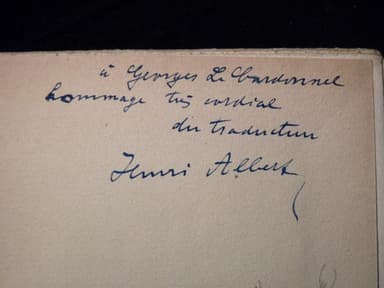 à Georges Le Cardonnel
hommage très cordial
du traducteur
Henri Albert